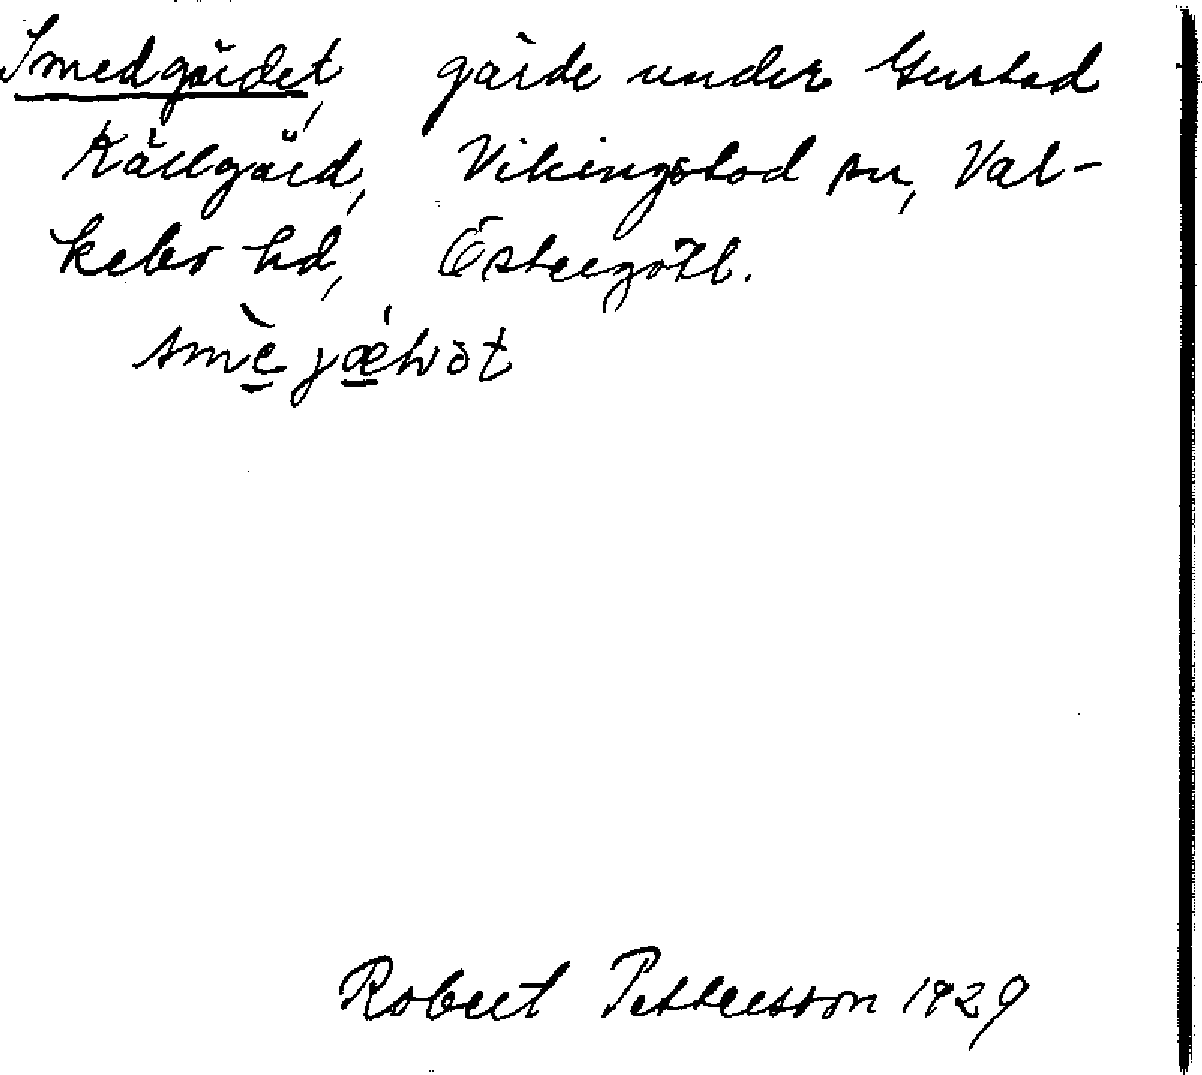 Smedgärdet, gärde under Gerstad
Källgård, Vikingstad sn, Val-
kebo hd, Östergötl.
smè jǽhvət
Robert Pettersson 1929